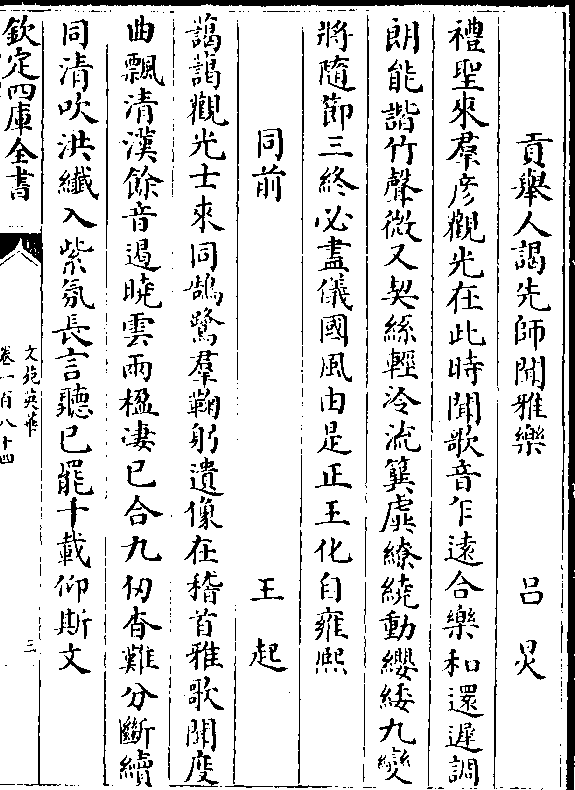 貢舉人謁先師聞雅樂　呂炅
禮聖來羣彦觀光在此時聞歌音乍遠合樂和還遲調
朗能諧竹聲微又契絲輕泠流簨虡繚繞動纓緌九變
將隨節三終必盡儀國風由是正王化自雍熙
同前　王起
藹藹觀光士來同鵠鷺羣鞠躬遺像在稽首雅歌聞度
曲飄清漢餘音遏曉雲兩楹凄已合九仞杳難分斷續
同清吹洪纖入紫氛長言聽已罷千載仰斯文
欽定四庫全書
文苑英華
卷一百八十四
三